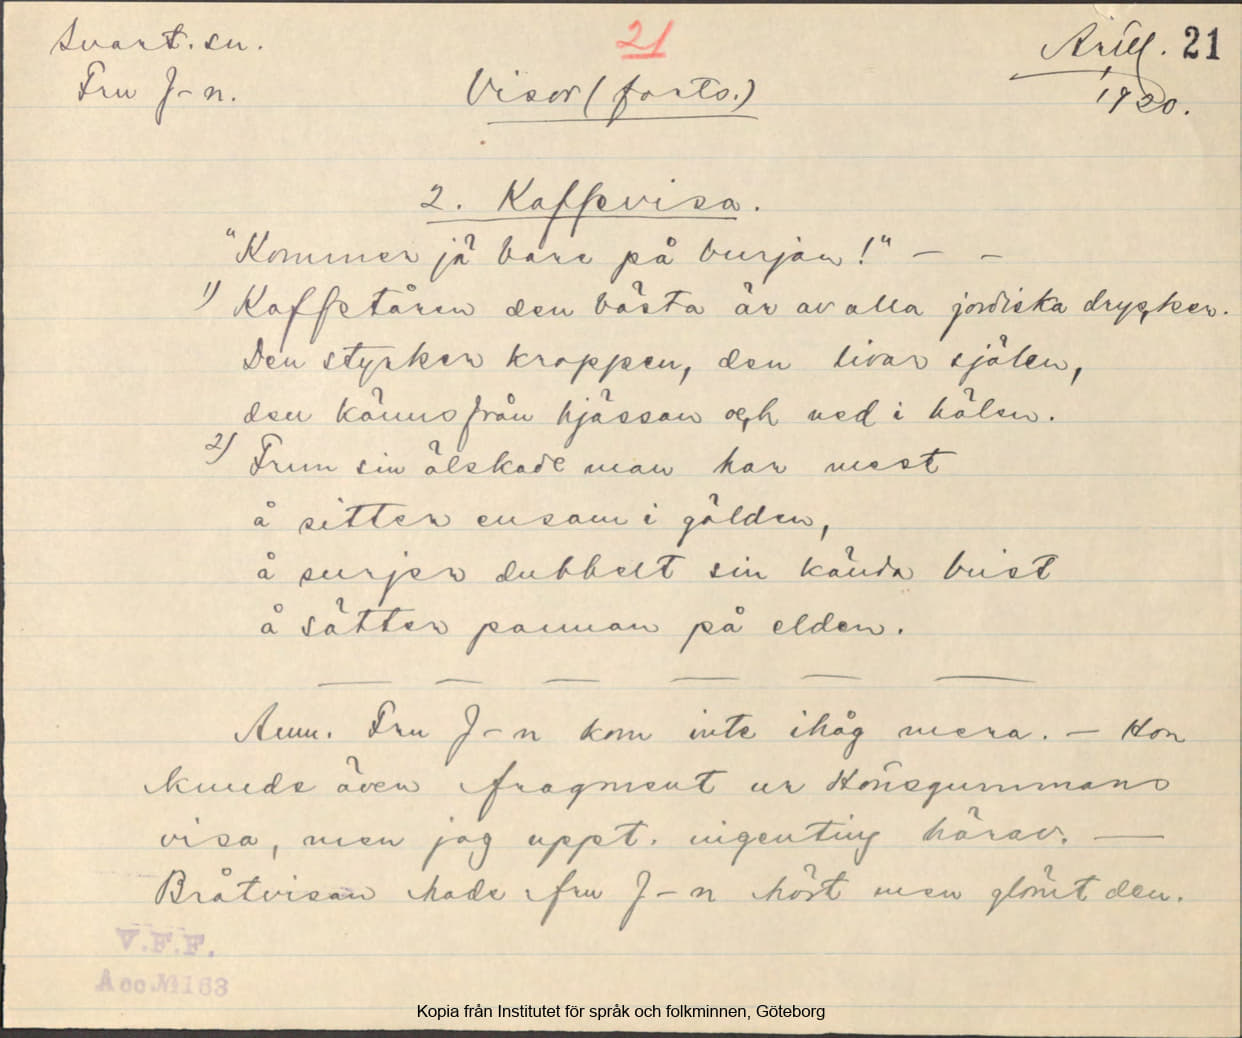 Svart. sn.
21
Arill. 21
Fru J-n.
Visor (forts.)
1920.
2. Kaffevisa.
"Kommer jä bara på burjan!" — —
1) Kaffetåren den bästa är av alla jordiska drycker.
Den styrker kroppen, den livar själen,
den känns från hjässan och ned i hälen.
2) Frun sin älskade man har mest
å sitter ensam i gälden,
å surjer dubbelt sin kända brist
å sätter pannan på elden.
Anm. Fru J-n kom inte ihåg mera. — Hon
kunde även fragment ur Hönsgummans
visa, men jag uppt. ingenting härav. —
Bråtvisan hade fru J-n hört men glömt den.
V.F.F.
Acc.№163
Kopia från Institutet för språk och folkminnen, Göteborg